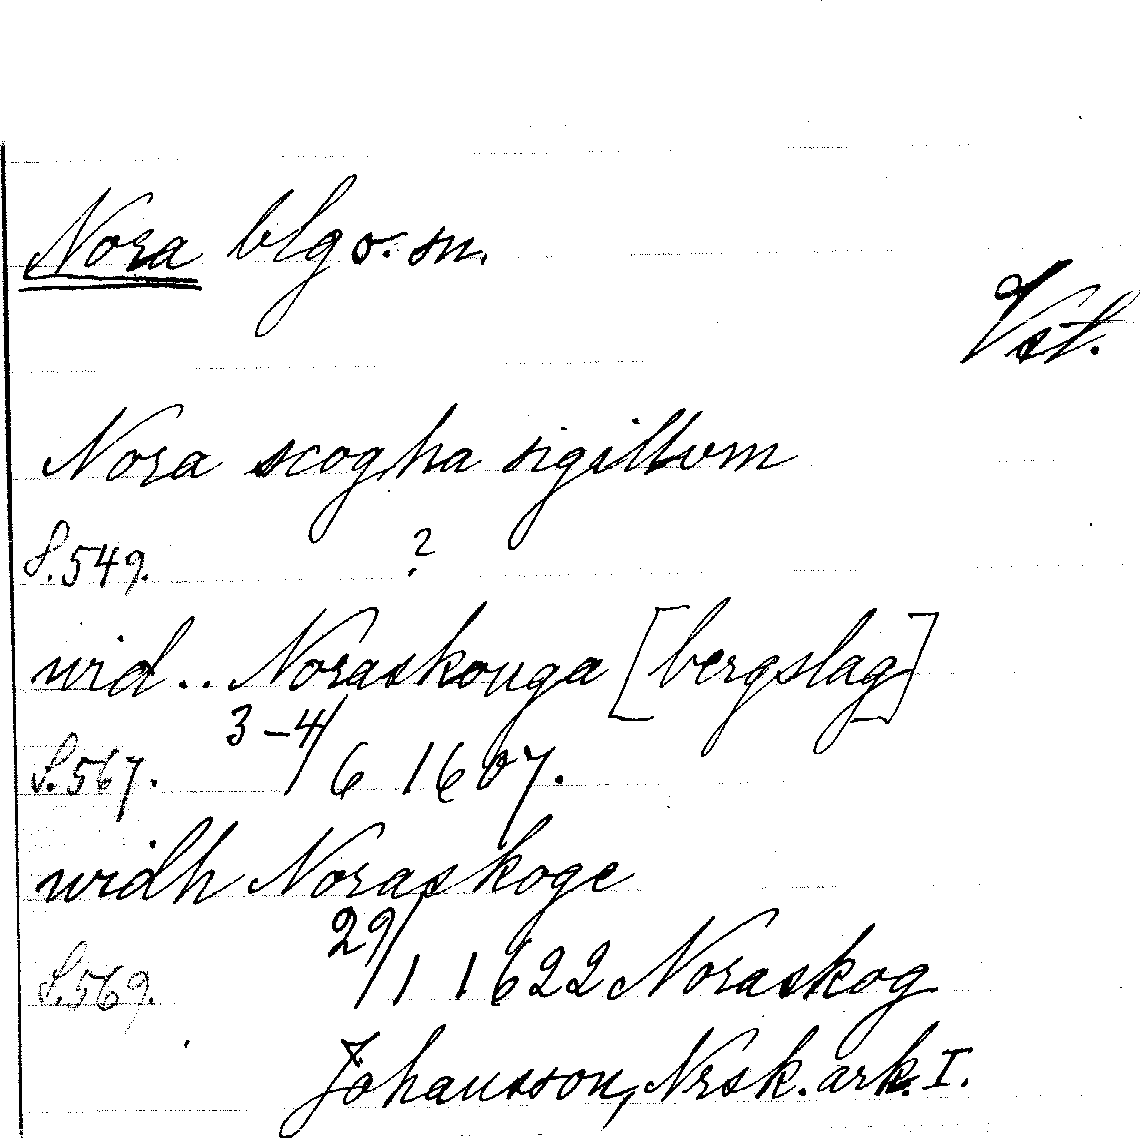 Nora blg o. sn.
Vst.
Nora scogha sigillvm
S. 549. ?
wid .. Noraskouga [bergslag]
S. 567. 3-4/6 1607.
widh Noraskoge
S. 569. 29/1 1622 Noraskog
Johansson, Nrsk. ark. I.